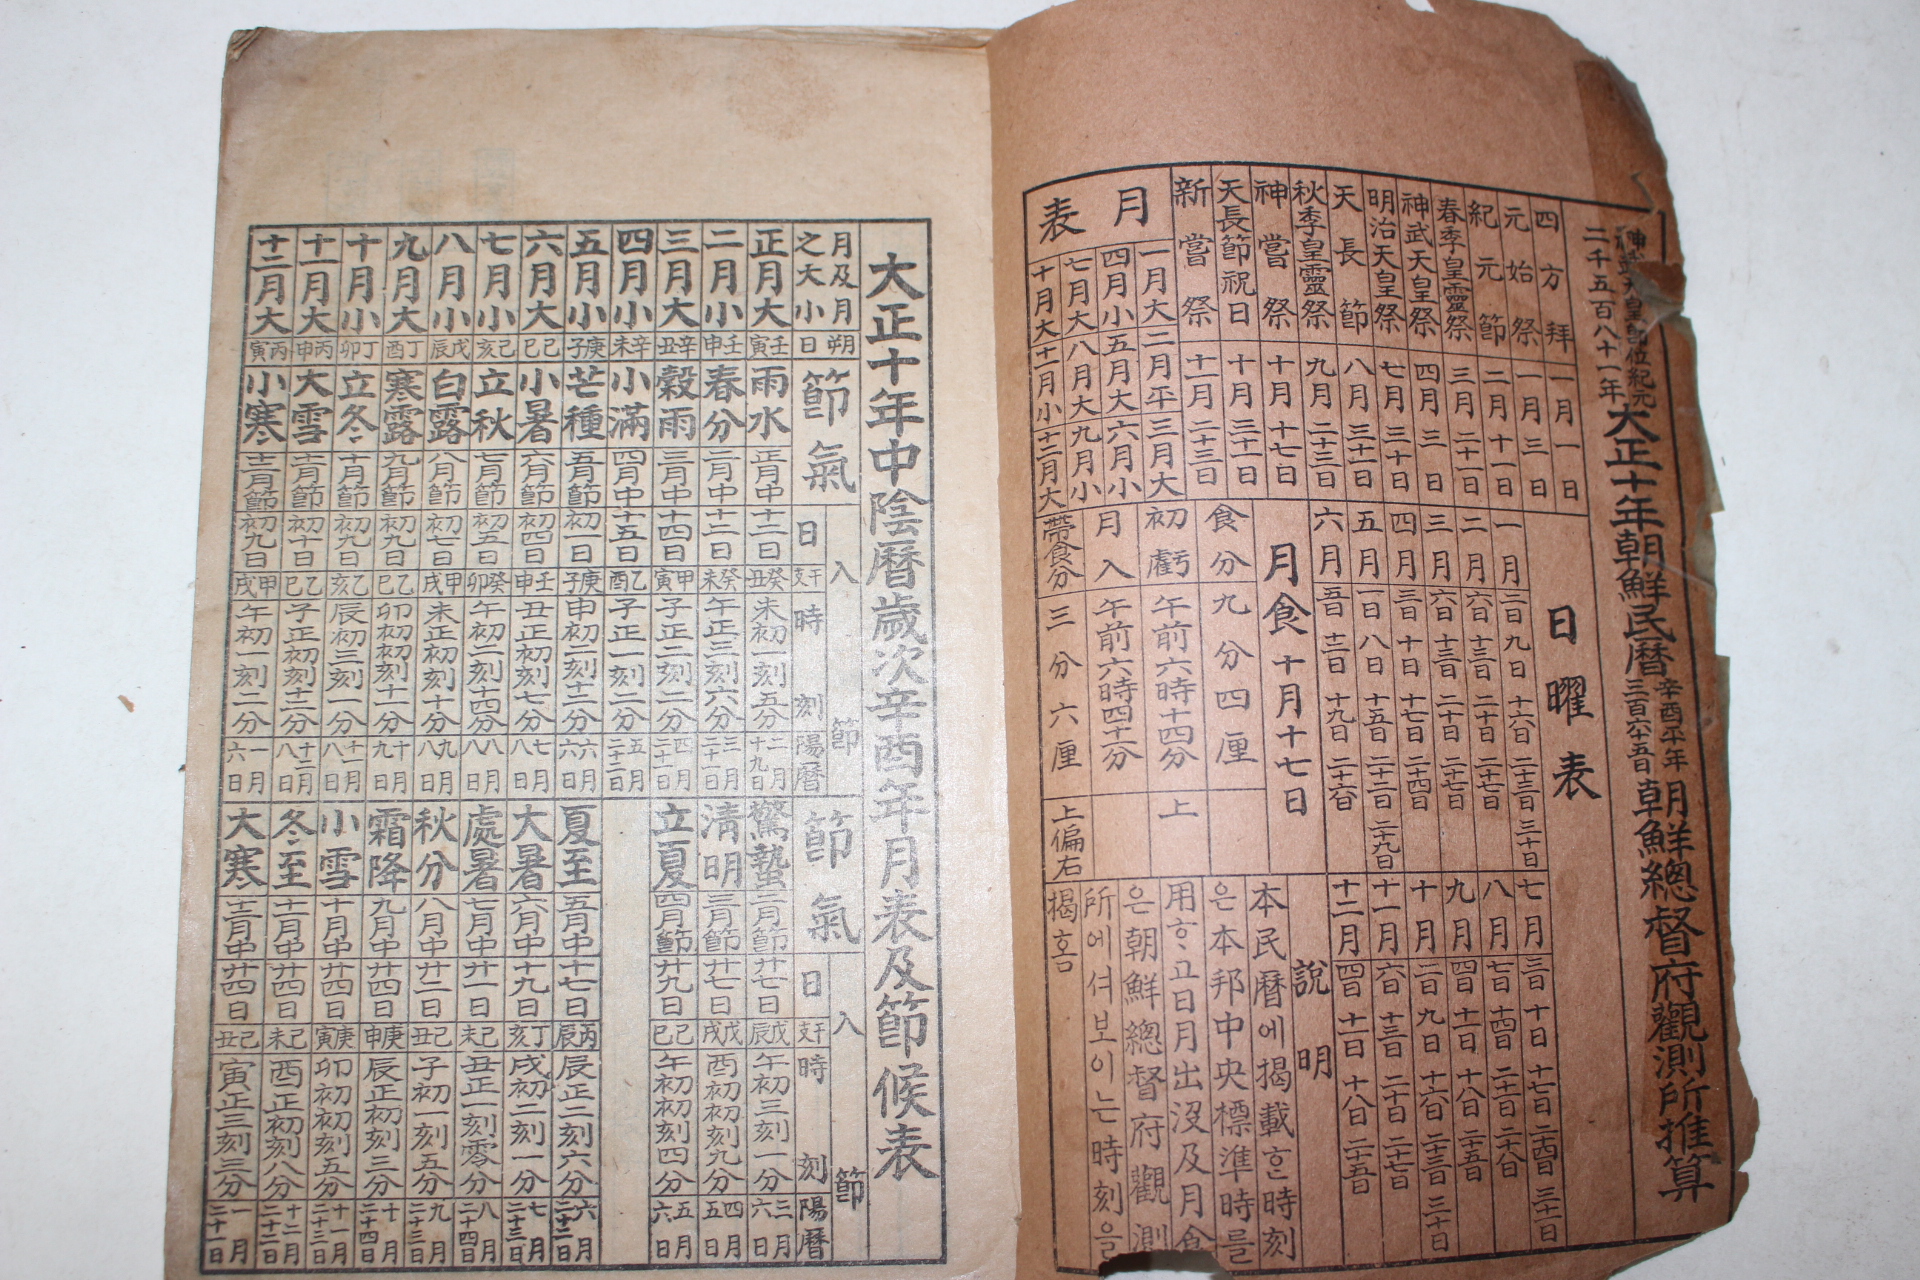 二千五百八十一年
大正十年朝鮮民曆
辛酉平年
三百六十五日
朝鮮總督府觀測所推算
四方拜 一月一日
元始祭 一月三日
紀元節 二月十一日
春季皇靈祭 三月二十一日
神武天皇祭 四月三日
明治天皇祭 七月三十日
天長節 八月三十一日
秋季皇靈祭 九月二十三日
神嘗祭 十月十七日
天長節祝日 十月三十一日
新嘗祭 十一月二十三日
月表
一月大 二月平 三月大
四月小 五月大 六月小
七月大 八月大 九月小
十月大 十一月小 十二月大
日曜表
一月 二日 九日 十六日 二十三日 三十日
二月 六日 十三日 二十日 二十七日
三月 六日 十三日 二十日 二十七日
四月 三日 十日 十七日 二十四日
五月 一日 八日 十五日 二十二日 二十九日
六月 五日 十二日 十九日 二十六日
七月 三日 十日 十七日 二十四日 三十一日
八月 七日 十四日 二十一日 二十八日
九月 四日 十一日 十八日 二十五日
十月 二日 九日 十六日 二十三日 三十日
十一月 六日 十三日 二十日 二十七日
十二月 四日 十一日 十八日 二十五日
月食 十月十七日
食分 九分四厘
初虧 午前六時十四分 上
月入 午前六時四十二分
帶食分 三分六厘 上偏右
說明
本民曆에揭載ᄒᆞᆫ時刻
은本邦中央標準時를
用ᄒᆞ고日月出沒及月食
은朝鮮總督府觀測
所에셔보이는時刻을
揭홈
大正十年中陰曆歲次辛酉年月表及節候表
月及月之大小 朔日 節氣 入節 日 干支 時刻 陽曆 節氣 入節 日 干支 時刻 陽曆
正月大 壬寅 雨水 正月中 十二日 癸丑 未初一刻五分 二月十九日 驚蟄 二月節 廿七日 戊辰 午初三刻一分 三月六日
二月小 壬申 春分 二月中 十二日 癸未 午正三刻六分 三月二十一日 淸明 三月節 廿七日 戊戌 酉初初刻九分 四月五日
三月大 辛丑 穀雨 三月中 十四日 甲寅 子正二刻二分 四月二十一日 立夏 四月節 廿九日 己巳 午初初刻四分 五月六日
四月小 辛未 小滿 四月中 十五日 乙酉 子正一刻二分 五月二十二日
五月小 庚子 芒種 五月節 初一日 庚子 申初二刻十二分 六月六日 夏至 五月中 十七日 丙辰 辰正二刻六分 六月二十二日
六月大 己巳 小暑 六月節 初四日 壬申 丑正初刻七分 七月八日 大暑 六月中 十九日 丁亥 戌初二刻一分 七月二十三日
七月小 己亥 立秋 七月節 初五日 癸卯 午初二刻十四分 八月八日 處暑 七月中 廿一日 己未 丑正一刻零分 八月二十四日
八月小 戊辰 白露 八月節 初七日 甲戌 未正初刻十分 九月八日 秋分 八月中 廿二日 己丑 子初一刻五分 九月二十三日
九月大 丁酉 寒露 九月節 初九日 乙巳 卯初初刻十一分 十月九日 霜降 九月中 廿四日 庚申 辰正初刻三分 十月二十四日
十月小 丁卯 立冬 十月節 初九日 乙亥 辰初三刻一分 十一月八日 小雪 十月中 廿四日 庚寅 卯初初刻五分 十一月二十三日
十一月大 丙申 大雪 十一月節 初十日 乙巳 子正初刻十二分 十二月八日 冬至 十一月中 廿四日 己未 酉正初刻八分 十二月二十二日
十二月大 丙寅 小寒 十二月節 初九日 甲戌 午初一刻二分 一月六日 大寒 十二月中 廿四日 己丑 寅正三刻三分 一月二十一日